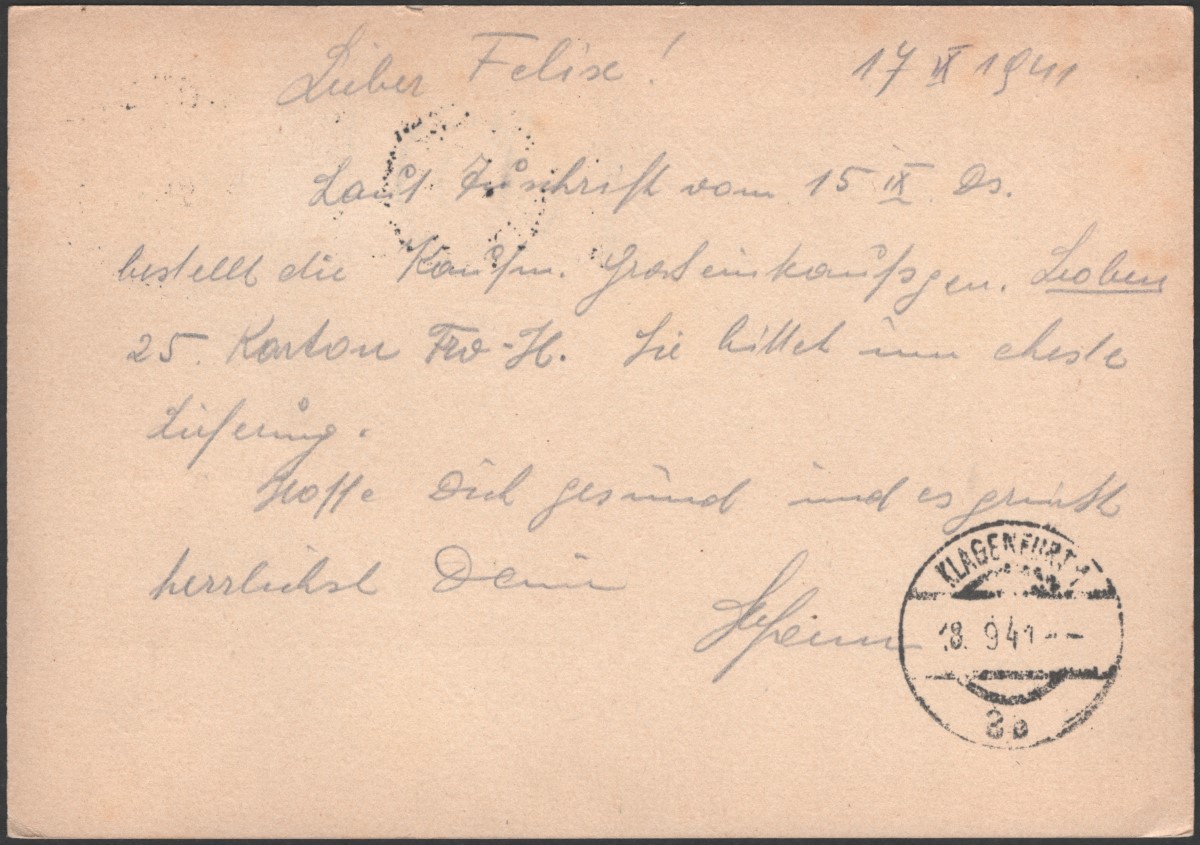 Lieber Felix! 17 IX 1941
Laut Zuschrift vom 15 IX Ds.
bestellt die Kaufm. Grosseinkaufsgen. Leoben
25. Karton Fro-H. Sie bittet um eheste
Lieferung.
Hoffe Dich gesund und es grüsst
herzlichst Dein
KLAGENFURT 1
18. 9 41 --